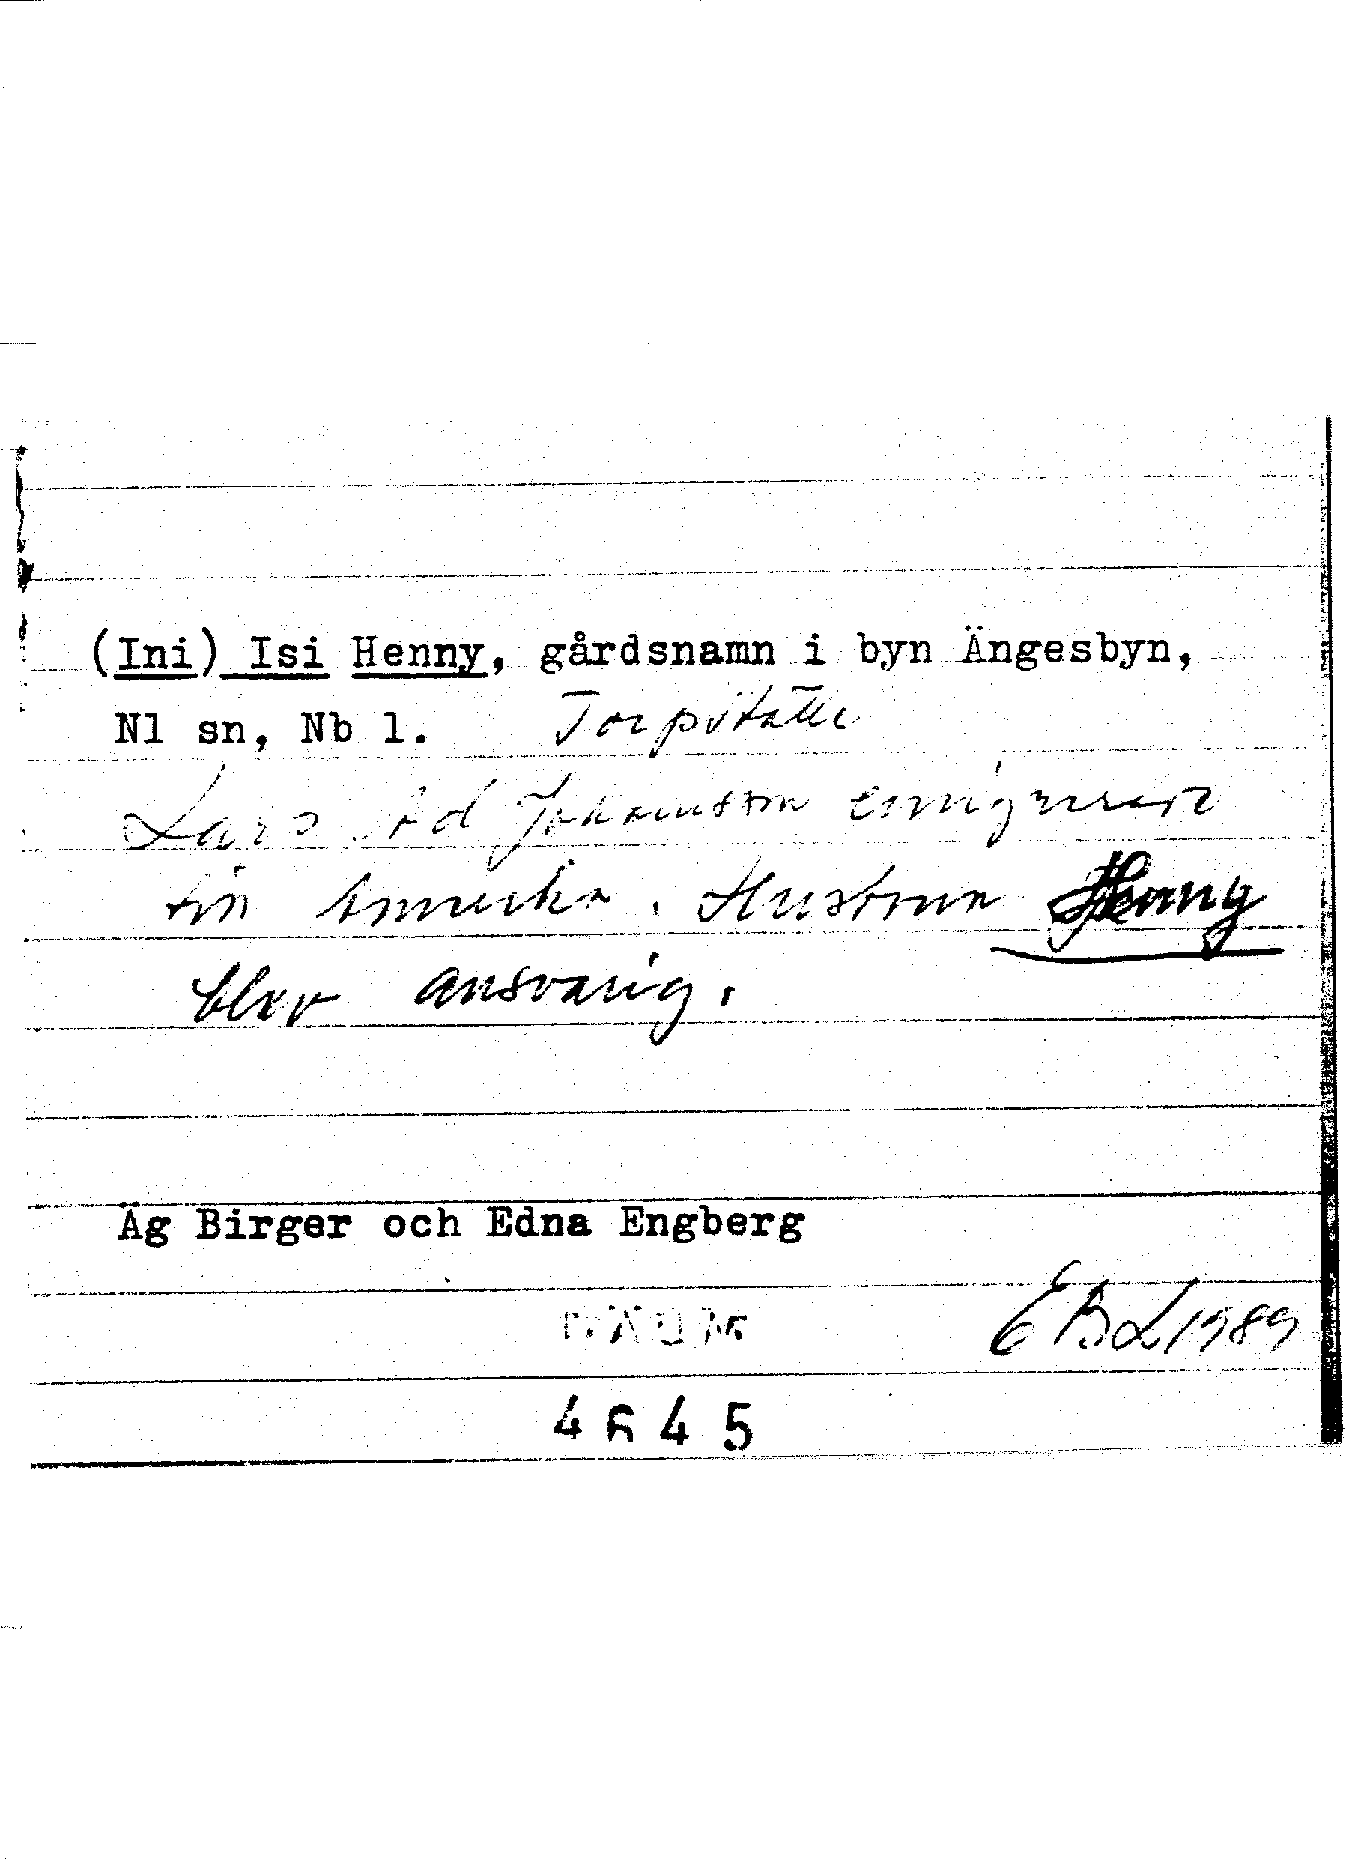 (Ini) Isi Henny, gårdsnamn i byn Ängesbyn,
Nl sn, Nb l. Torpställe
Lars Ad Johansson emigrerade
till Amerika. Hustrun Henny
blev ansvarig.
Äg Birger och Edna Engberg
DAUM EBL 1989
4645